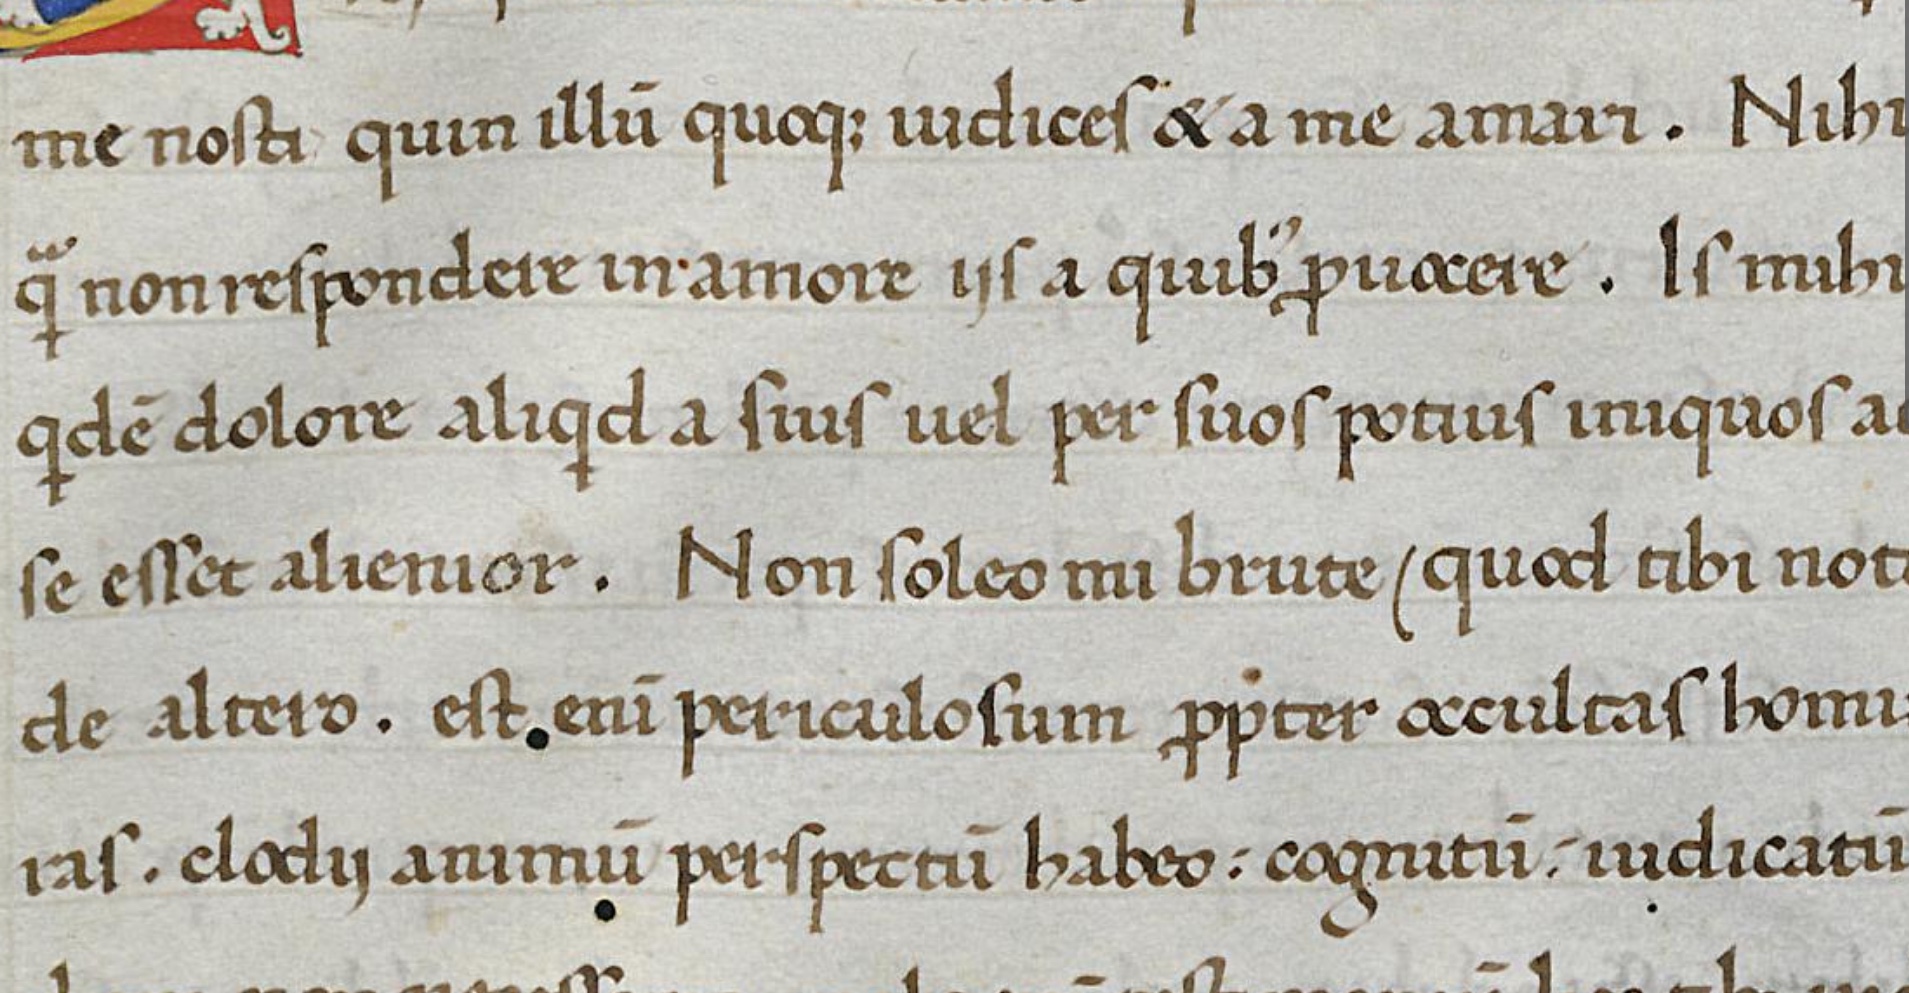 me nosti quin illū quoq; iudices & a me amari . Nihi
qᷓ non respondere in amore ijs a quibꝰ ꝓuocere . Is mihi
qdē dolore aliqd a suis uel per suos potius iniquos ad
se esset alienior . Non soleo mi brute ( quod tibi not
de altero . est eni̅ periculosum ꝓpter occultas homi
ras . clodij animū perspectū habeo : cognitū : iudicatū